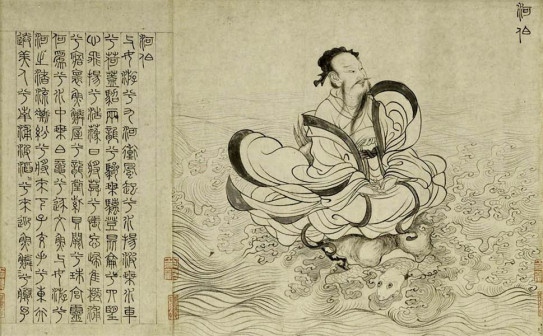 河伯
河伯
与女游兮九河衝風起兮水揚波乘水車
兮荷蓋駕兩龍兮驂螭登崑崙兮四望
心飛揚兮浩蕩日將莫兮悵忘歸惟極浦
兮寤懷魚鱗屋兮龍堂紫貝闕兮珠宮靈
何爲兮水中乘白黿兮逐文魚与女游兮
河之渚流澌紛兮將來下子交手兮東行
送美人兮南浦波滔滔兮來迎魚鱗鱗兮媵予